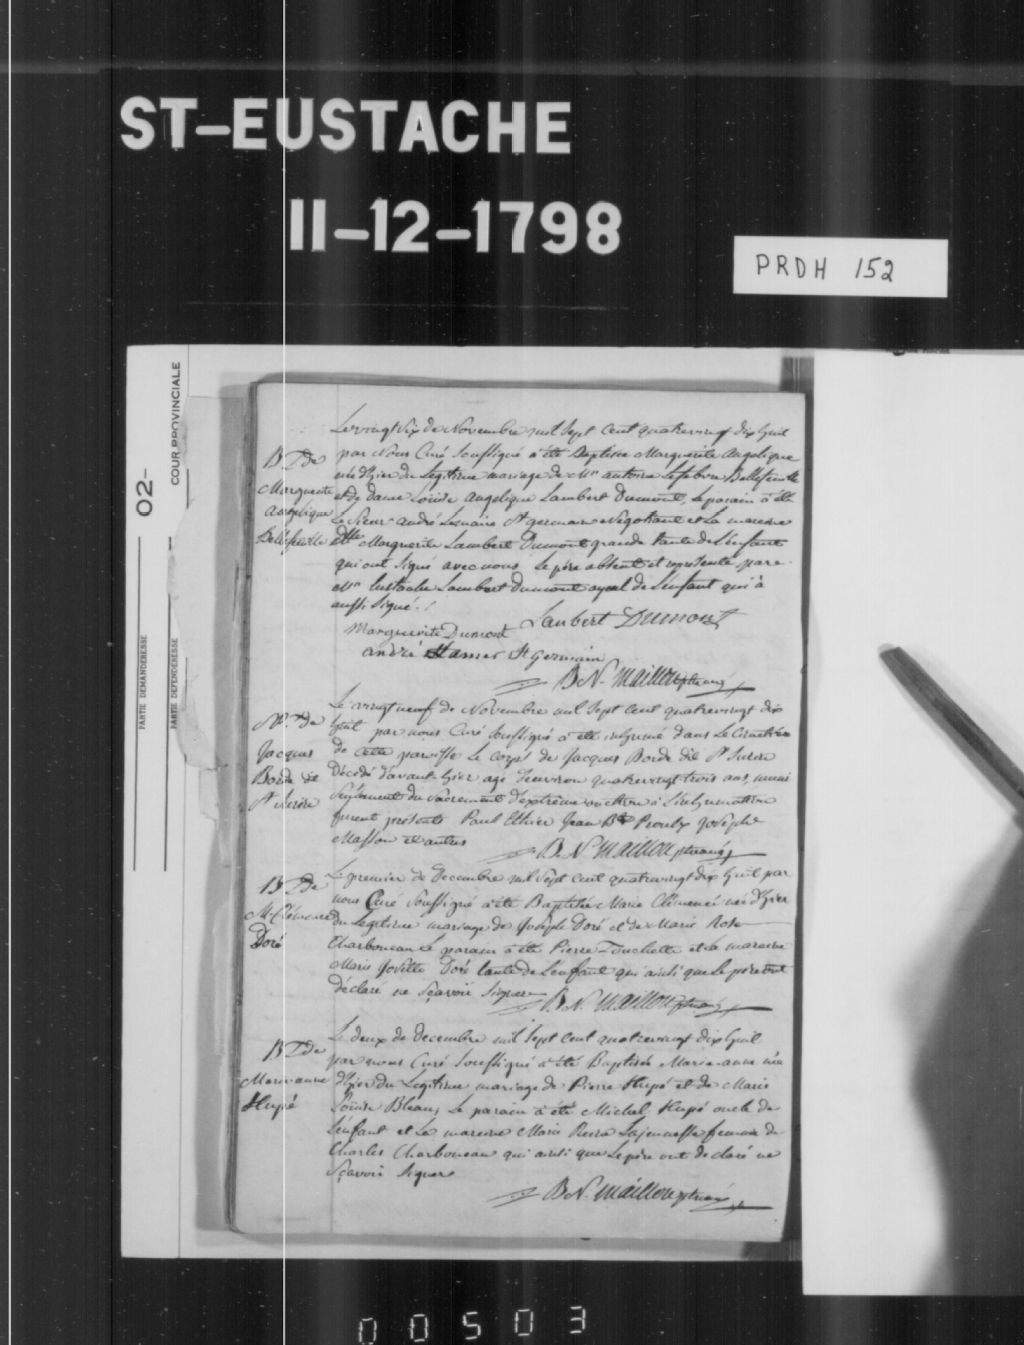 ST-EUSTACHE
11-12-1798
PRDH 152
02-
COUR PROVINCIALE
PARTIE DEMANDERESSE
PARTIE DEFENDERESSE
Le vingt Six de Novembre mil Sept Cent quatrevingt dix huit
par Nous Curé Soussigné a été Baptisée Marguerite Angelique
née d'hier du Legitime mariage de Mr antoine Lefebvre Bellefeuille
et de dame Louise Angelique Lambert Dumont, le parain a été
Le Sieur andré St germain Négotiant et La mareine
Marguerite Lambert Dumont grande tante de L'enfant
qui ont Signé avec nous Le père absent et représenté par
Mr Eustache Lambert Dumont ayeul de L'enfant qui a
aussi Signé.
B. de
Marguerite
Angelique
Bellefeuille
Lambert Dumont
Marguerite Dumont
andré St germain
B. N. Maillou ptre
Le vingt neuf de Novembre mil Sept cent quatrevingt dix
huit par nous Curé Soussigné a été inhumé dans Le Cimetière
de cette paroisse Le corps de Jacques Borde dit St Surin
Décédé d'avant hier agé d'environ quatrevingt trois ans, muni
Seulement du Sacrement d'extrême onction à L'inhumation
furent présents Paul Ethier Jean Bte Proulx Joseph
Masson et autres
de
Jacques
Borde dit
B. N. Maillou ptre
Le premier de Decembre mil Sept cent quatrevingt dix huit par
nous Curé Soussigné a été Baptisée Marie Clémence née d'hier
du Legitime mariage de Joseph Doré et de Marie Rose
Charboneau Le parain a été Pierre Touchette et La mareine
Marie Doré tante de L'enfant qui ainsi que Le père ont
déclaré ne Sçavoir Signer
B. de
M. Clémence
Doré
B. N. Maillou ptre
Le deux de Decembre mil Sept cent quatrevingt dix huit
par nous Curé Soussigné a été Baptisée Marie-anne née
d'hier du Legitime mariage de Pierre Hupé et de Marie
Louise Bleau, Le parain a été Michel Hupé oncle de
L'enfant et La mareine Marie Lajeunesse femme de
Charles Charboneau qui ainsi que Le père ont declaré ne
Sçavoir Signer
B. de
Marie anne
Hupé
B. N. Maillou ptre
00503